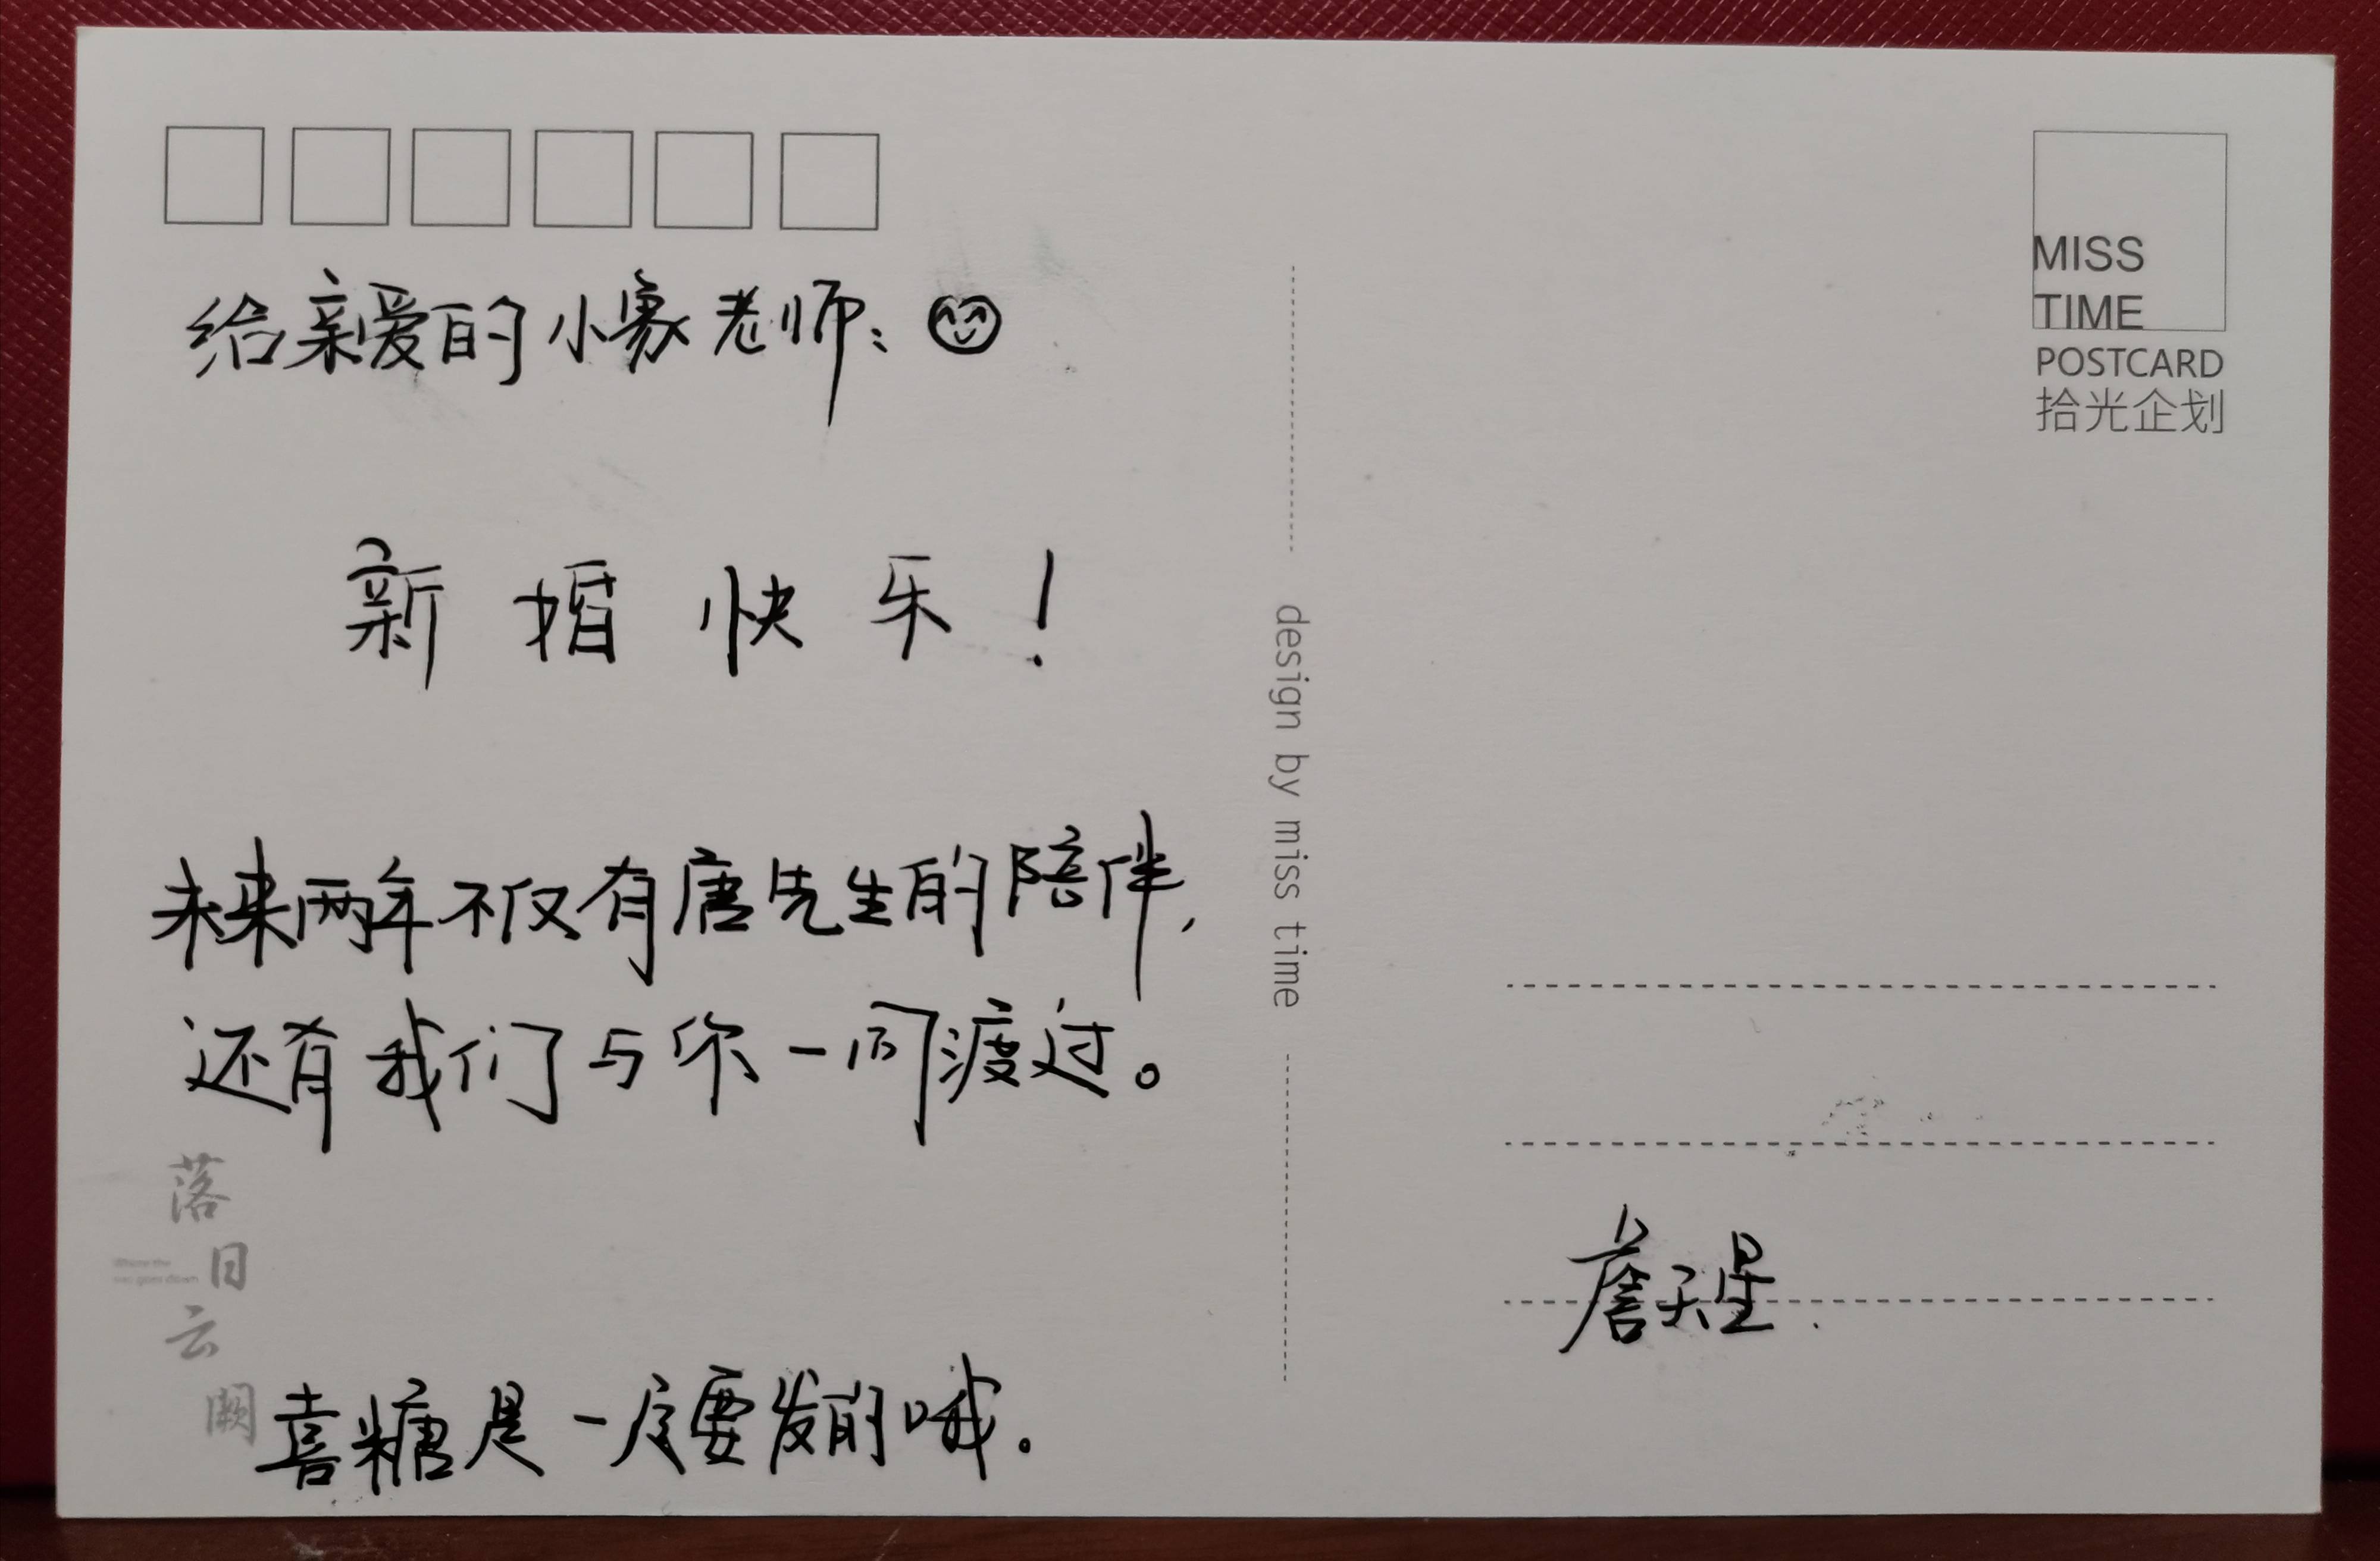 给亲爱的小象老师：
新婚快乐！
未来两年不仅有唐先生的陪伴，
还有我们与你一同渡过。
喜糖是一定要发的哦。
落
日
云
阙
design by miss time
MISS
TIME
POSTCARD
拾光企划
詹天星.